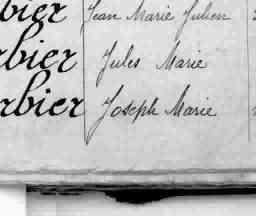 rbier Jean Marie Julien
rbier Jules Marie
rbier Joseph Marie